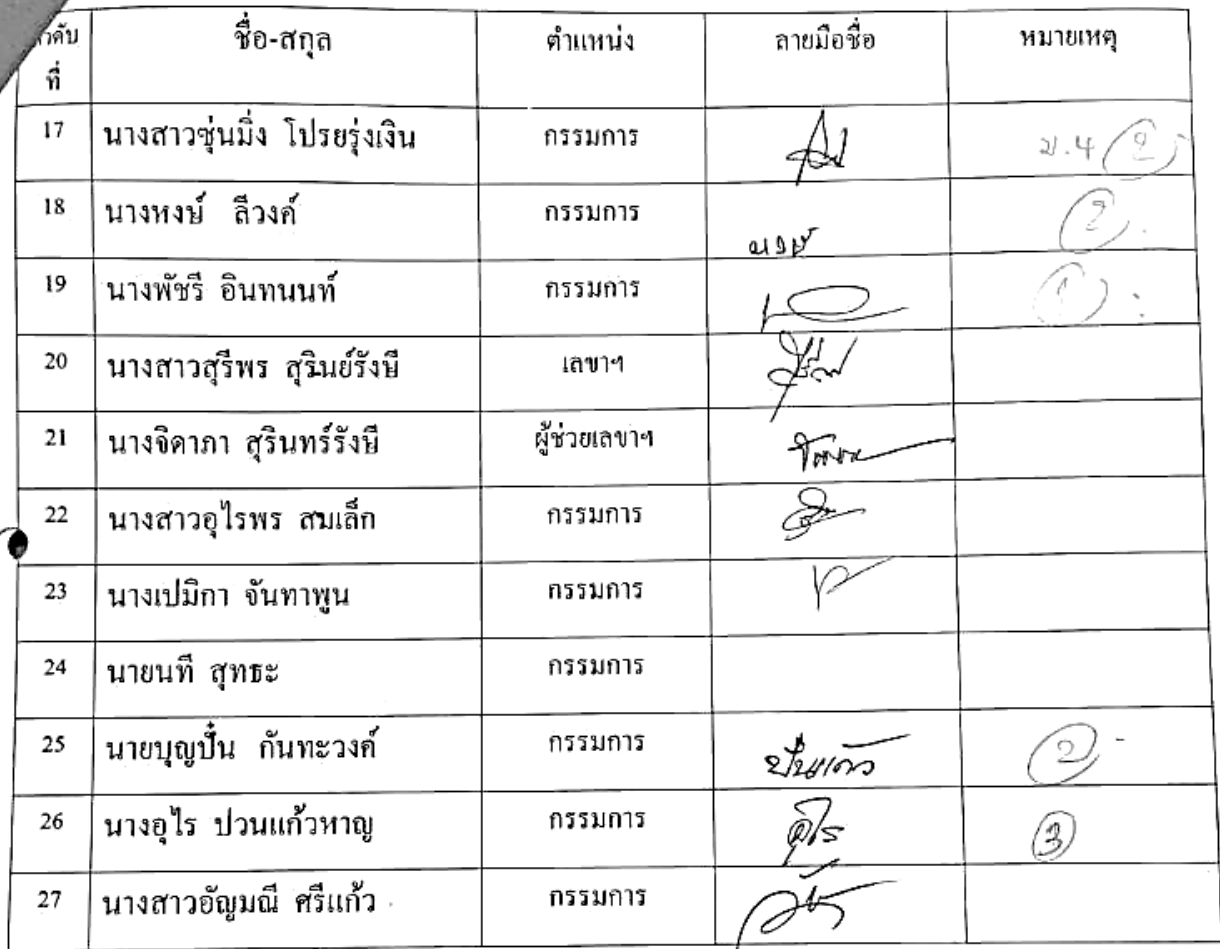 ลำดับ ชื่อ-สกุล ตำแหน่ง ลายมือชื่อ หมายเหตุ
ที่
17 นางสาวซุ่นมิ่ง โปรยรุ่งเงิน กรรมการ ม.4 2
18 นางหงษ์ ลีวงค์ กรรมการ 2
19 นางพัชรี อินทนนท์ กรรมการ 1
20 นางสาวสุรีพร สุรินย์รังษี เลขาฯ
21 นางจิดาภา สุรินทร์รังษี ผู้ช่วยเลขาฯ
22 นางสาวอุไรพร สมเล็ก กรรมการ
23 นางเปมิกา จันทาพูน กรรมการ
24 นายนที สุทธะ กรรมการ
25 นายบุญปั๋น กันทะวงค์ กรรมการ ปั๋นแก้ว 2
26 นางอุไร ปวนแก้วหาญ กรรมการ อุไร 3
27 นางสาวอัญมณี ศรีแก้ว กรรมการ